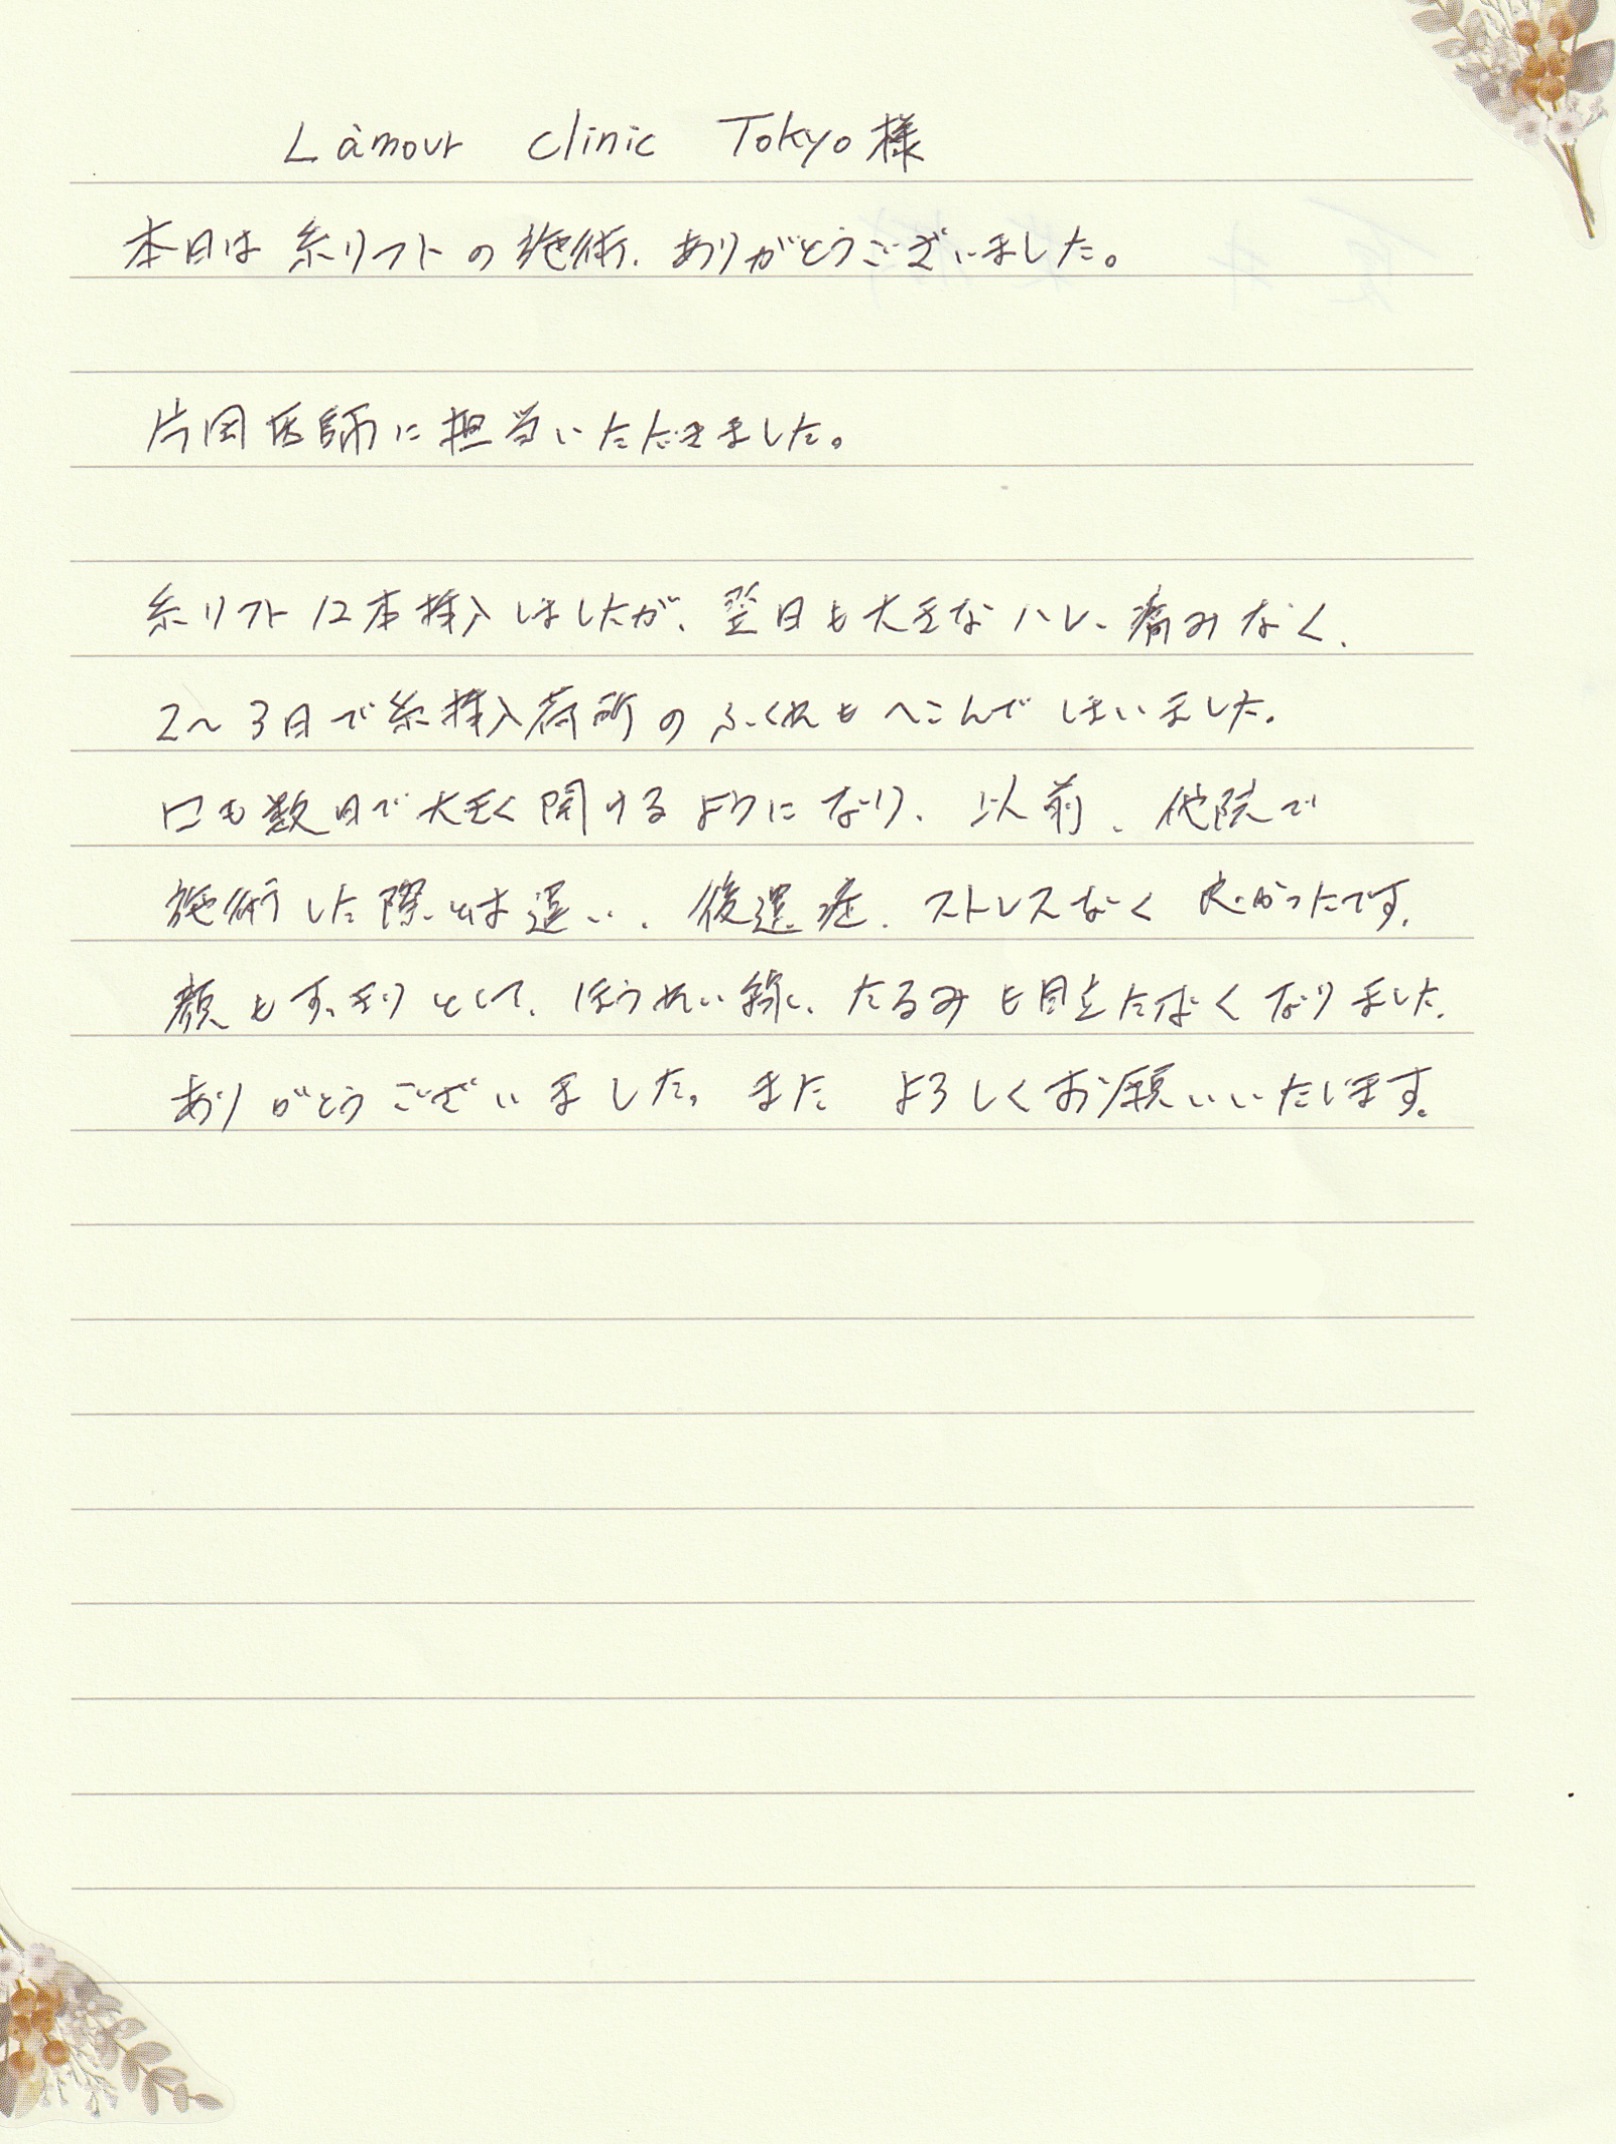 Làmour clinic Tokyo様
本日は糸リフトの施術、ありがとうございました。
片岡医師に担当いただきました。
糸リフト12本挿入しましたが、翌日も大きなハレ、痛みなく、
2〜3日で糸挿入箇所のふくれもへこんでしまいました。
口も数日で大きく開けるようになり、以前、他院で
施術した際とは違い、後遺症、ストレスなく良かったです。
顔もすっきりとして、ほうれい線、たるみも目立たなくなりました。
ありがとうございました。また よろしくお願いいたします。